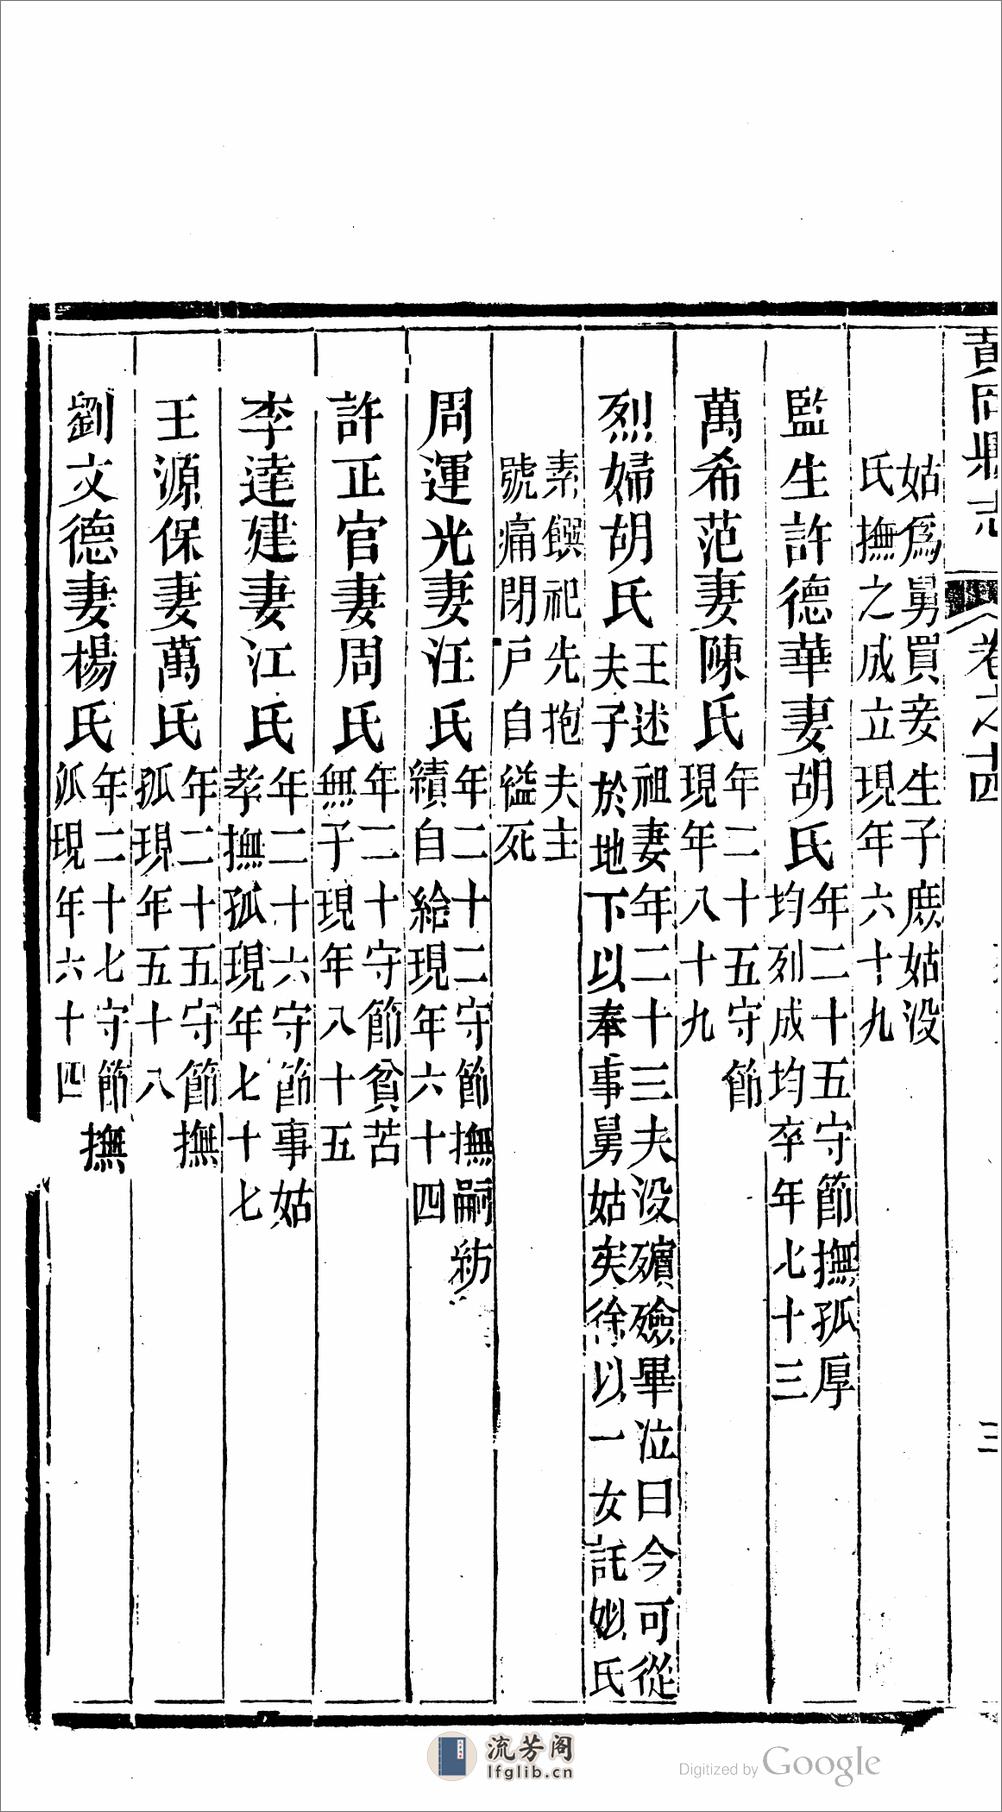 黃岡縣志
卷之十四
三
姑爲舅買妾生子庶姑没
氏撫之成立現年六十九
監生許德華妻胡氏
年二十五守節撫孤厚
均列成均卒年七十三
萬希范妻陳氏
年二十五守節
現年八十九
烈婦胡氏
王述祖妻年二十三夫没殯殮畢泣曰今可從
夫子於地下以奉事舅姑矣徐以一女託姒氏
素饌祀先抱夫主
號痛閉戸自縊死
周運光妻汪氏
年二十二守節撫嗣紡
績自給現年六十四
許正官妻周氏
年二十守節貧苦
無子現年八十五
李達建妻江氏
年二十六守節事姑
孝撫孤現年七十七
王源保妻萬氏
年二十五守節撫
孤現年五十八
劉文德妻楊氏
年二十七守節撫
孤現年六十四
流芳阁
lfglib.cn
Digitized by Google